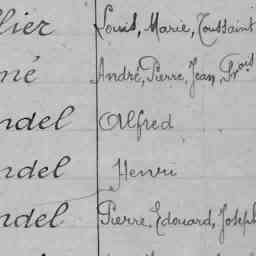 llier Louis, Marie, Toussaint
né André, Pierre, Jean, Frois
ndel Alfred
ndel Henri
ndel Pierre, Edouard, Joseph